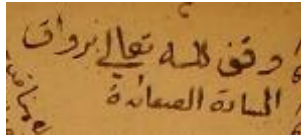 وقف لله تعالى برواق
السادة الصعائدة